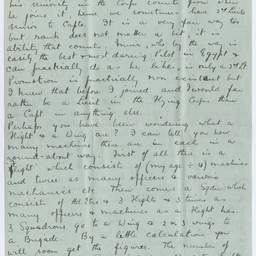 his seniority in the Corps counts from when
he joins it, hence sometimes have 2nd Lieuts
senior to Capts. It is a very fair way too
but rank does not matter a bit, it is
ability that counts. who by the way is
easily the best & most daring Pilot in Egypt &
can practically do as he likes, is only a 2nd Lt.
Promotion is practically non existent but
I knew that before I joined and I would far
rather be a Lieut. in the Flying Corps than
a Capt in anything else.
Perhaps you have been wondering what a
Flight & a Wing are? I can tell you how
many machines there are in each in a
round-about way. First of all there is a
flight which consists of (my age ÷ 4) machines
and twice as many officers & various
mechanics etc. Then comes a Sqdn which
consists of Hd. Qtrs & 3 Flights & 3 times as
many officers & machines as a Flight has.
3 Squadrons go to a Wing & 2 or 3 wings to
a Brigade. By a little calculation you
will soon get the figures. The number of